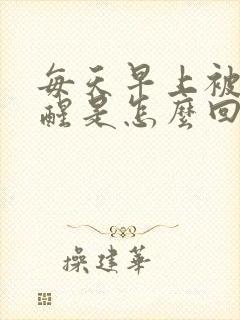 每天早上被
醒是怎麼回
操建華